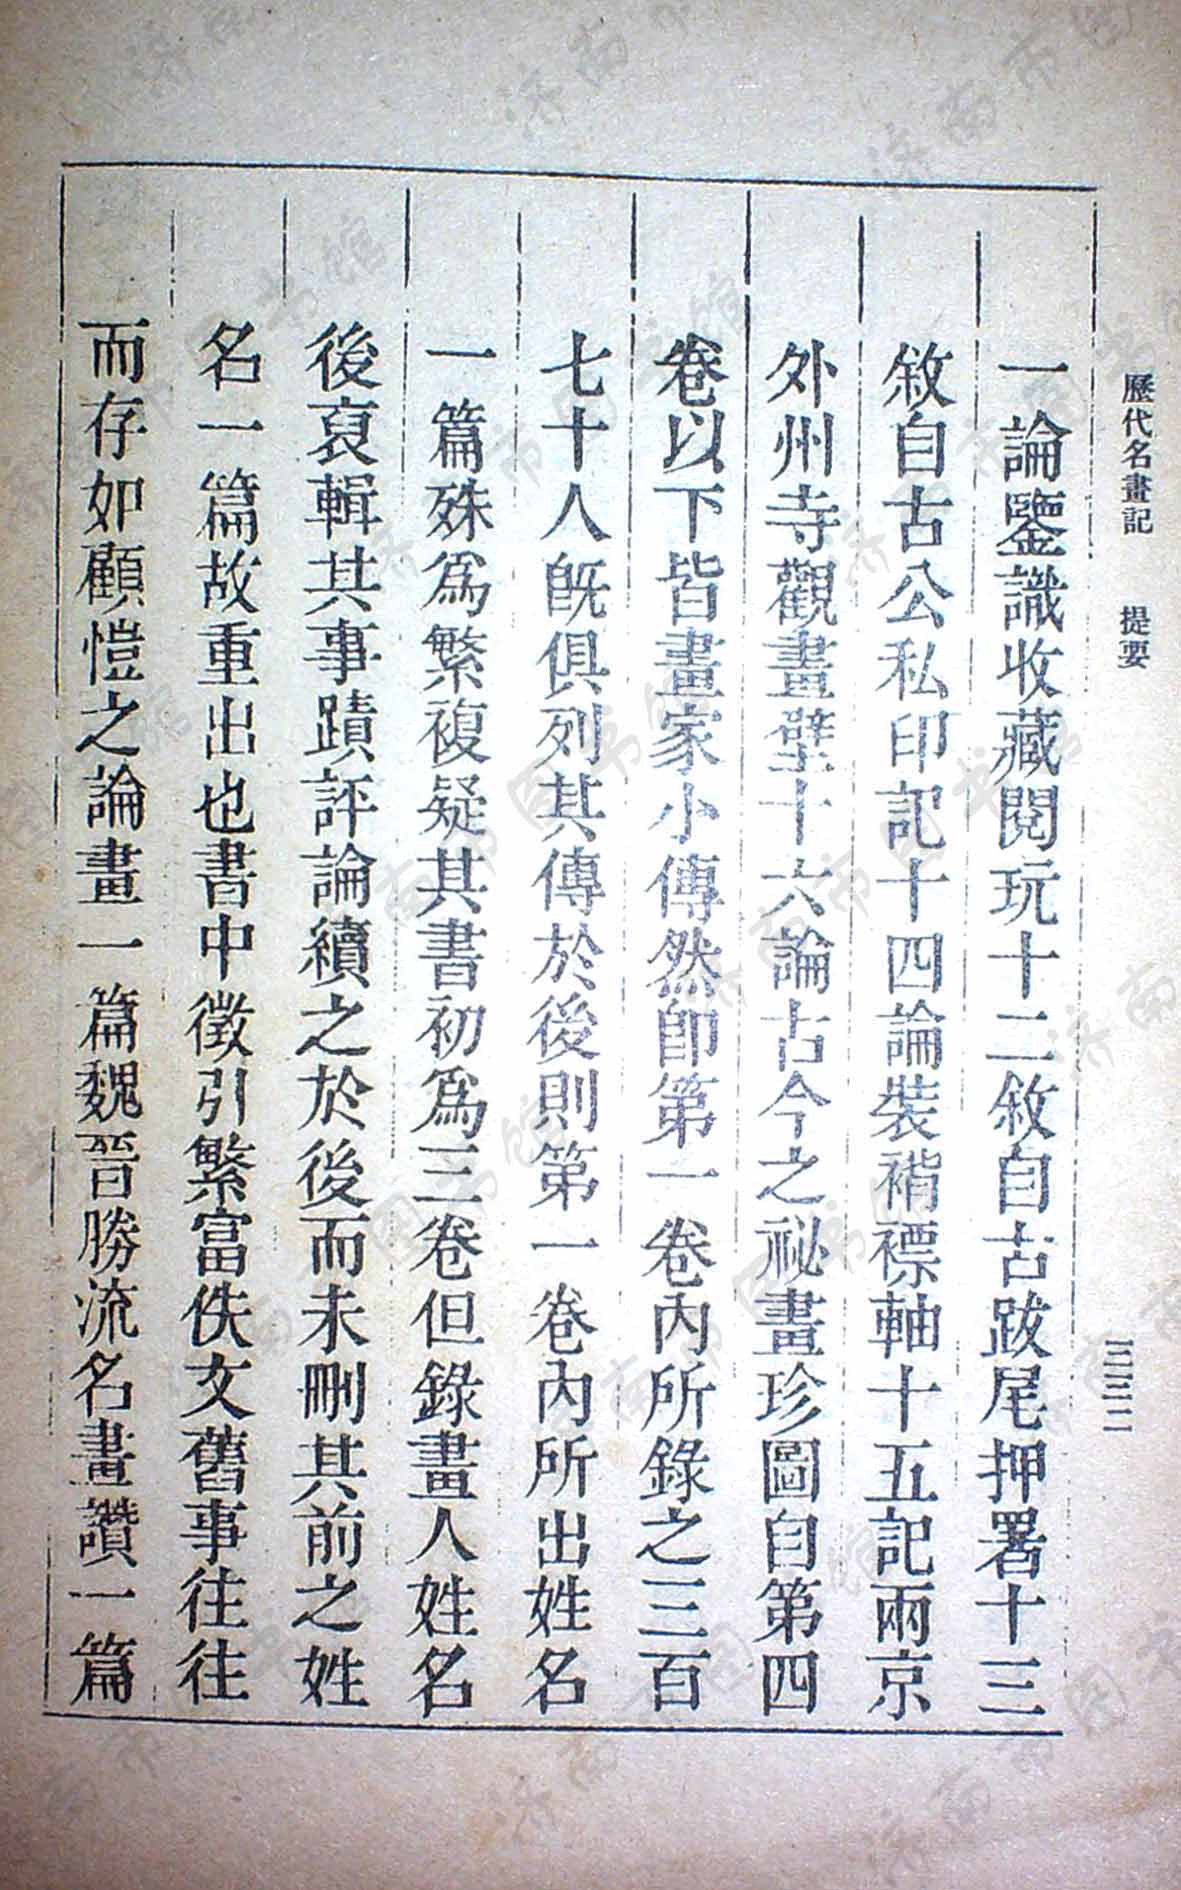 歷代名畫記　提要　三三二
一論鑒識收藏閱玩十二敘自古跋尾押署十三
敘自古公私印記十四論裝褙褾軸十五記兩京
外州寺觀畫壁十六論古今之祕畫珍圖自第四
卷以下皆畫家小傳然即第一卷內所錄之三百
七十人旣俱列其傳於後則第一卷內所出姓名
一篇殊爲繁複疑其書初爲三卷但錄畫人姓名
後裒輯其事蹟評論續之於後而未刪其前之姓
名一篇故重出也書中徵引繁富佚文舊事往往
而存如顧愷之論畫一篇魏晉勝流名畫讚一篇
济南市图书馆